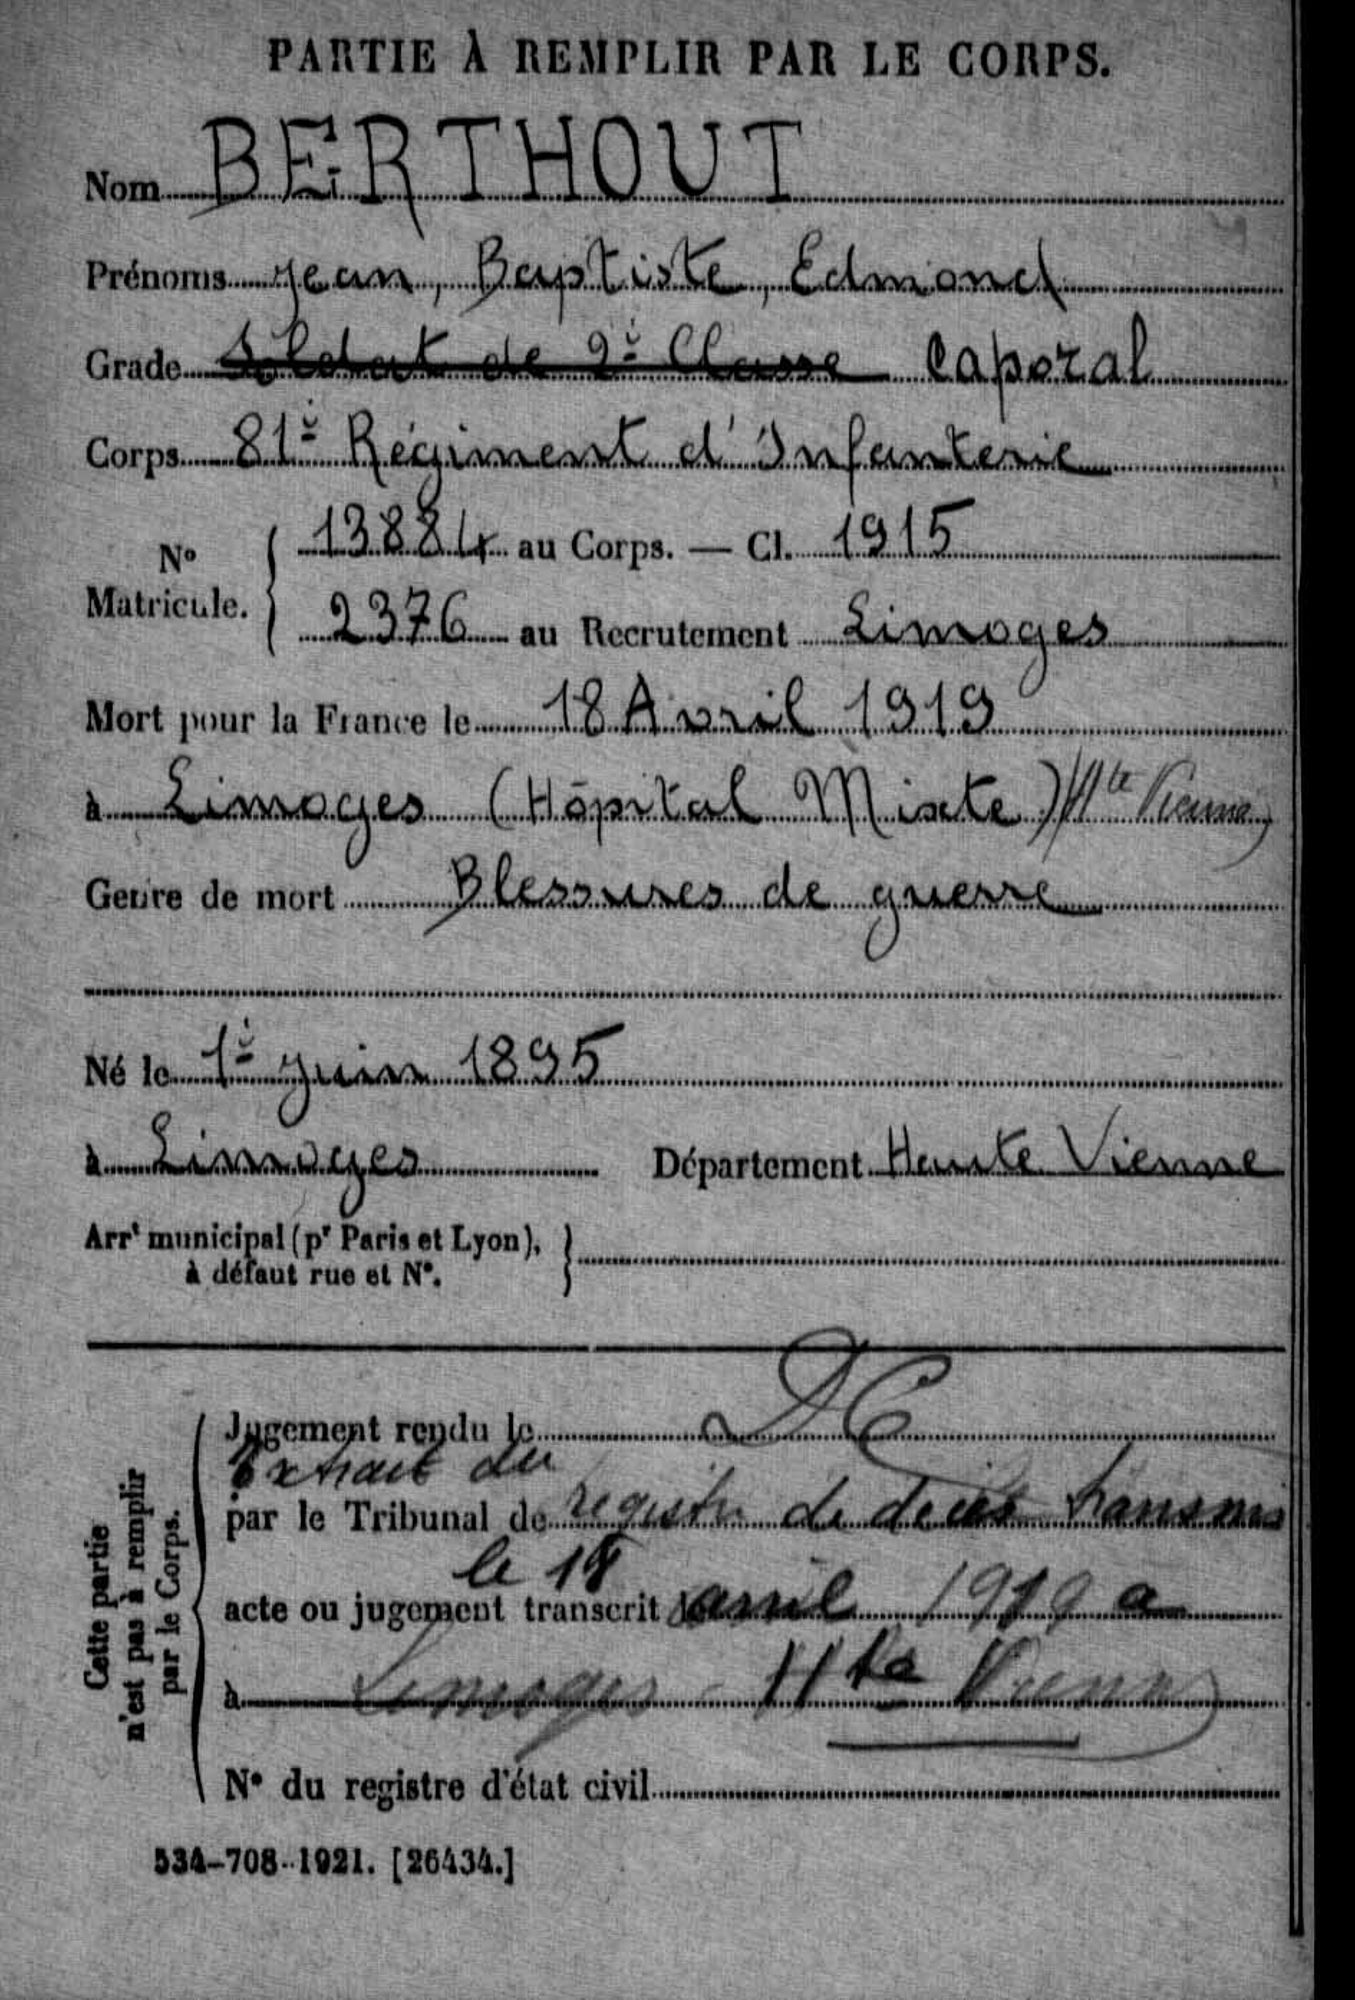 PARTIE À REMPLIR PAR LE CORPS.
Nom BERTHOUT
Prénoms Jean, Baptiste, Edmond
Grade Soldat de 2è Classe Caporal
Corps 81è Régiment d'Infanterie
N° Matricule. 13884 au Corps. — Cl. 1915
2376 au Recrutement Limoges
Mort pour la France le 18 Avril 1919
à Limoges (Hôpital Mixte) (Hte Vienne)
Genre de mort Blessures de guerre
Né le 1è Juin 1895
à Limoges Département Haute Vienne
Arrt municipal (pr Paris et Lyon),
à défaut rue et N°.
DC
Jugement rendu le
Extrait du
par le Tribunal de registre de décès transmis
le 18
acte ou jugement transcrit le avril 1919 a
à Limoges - Hte Vienne
N° du registre d'état civil
Cette partie
n'est pas à remplir
par le Corps.
534-708-1921. [26434.]